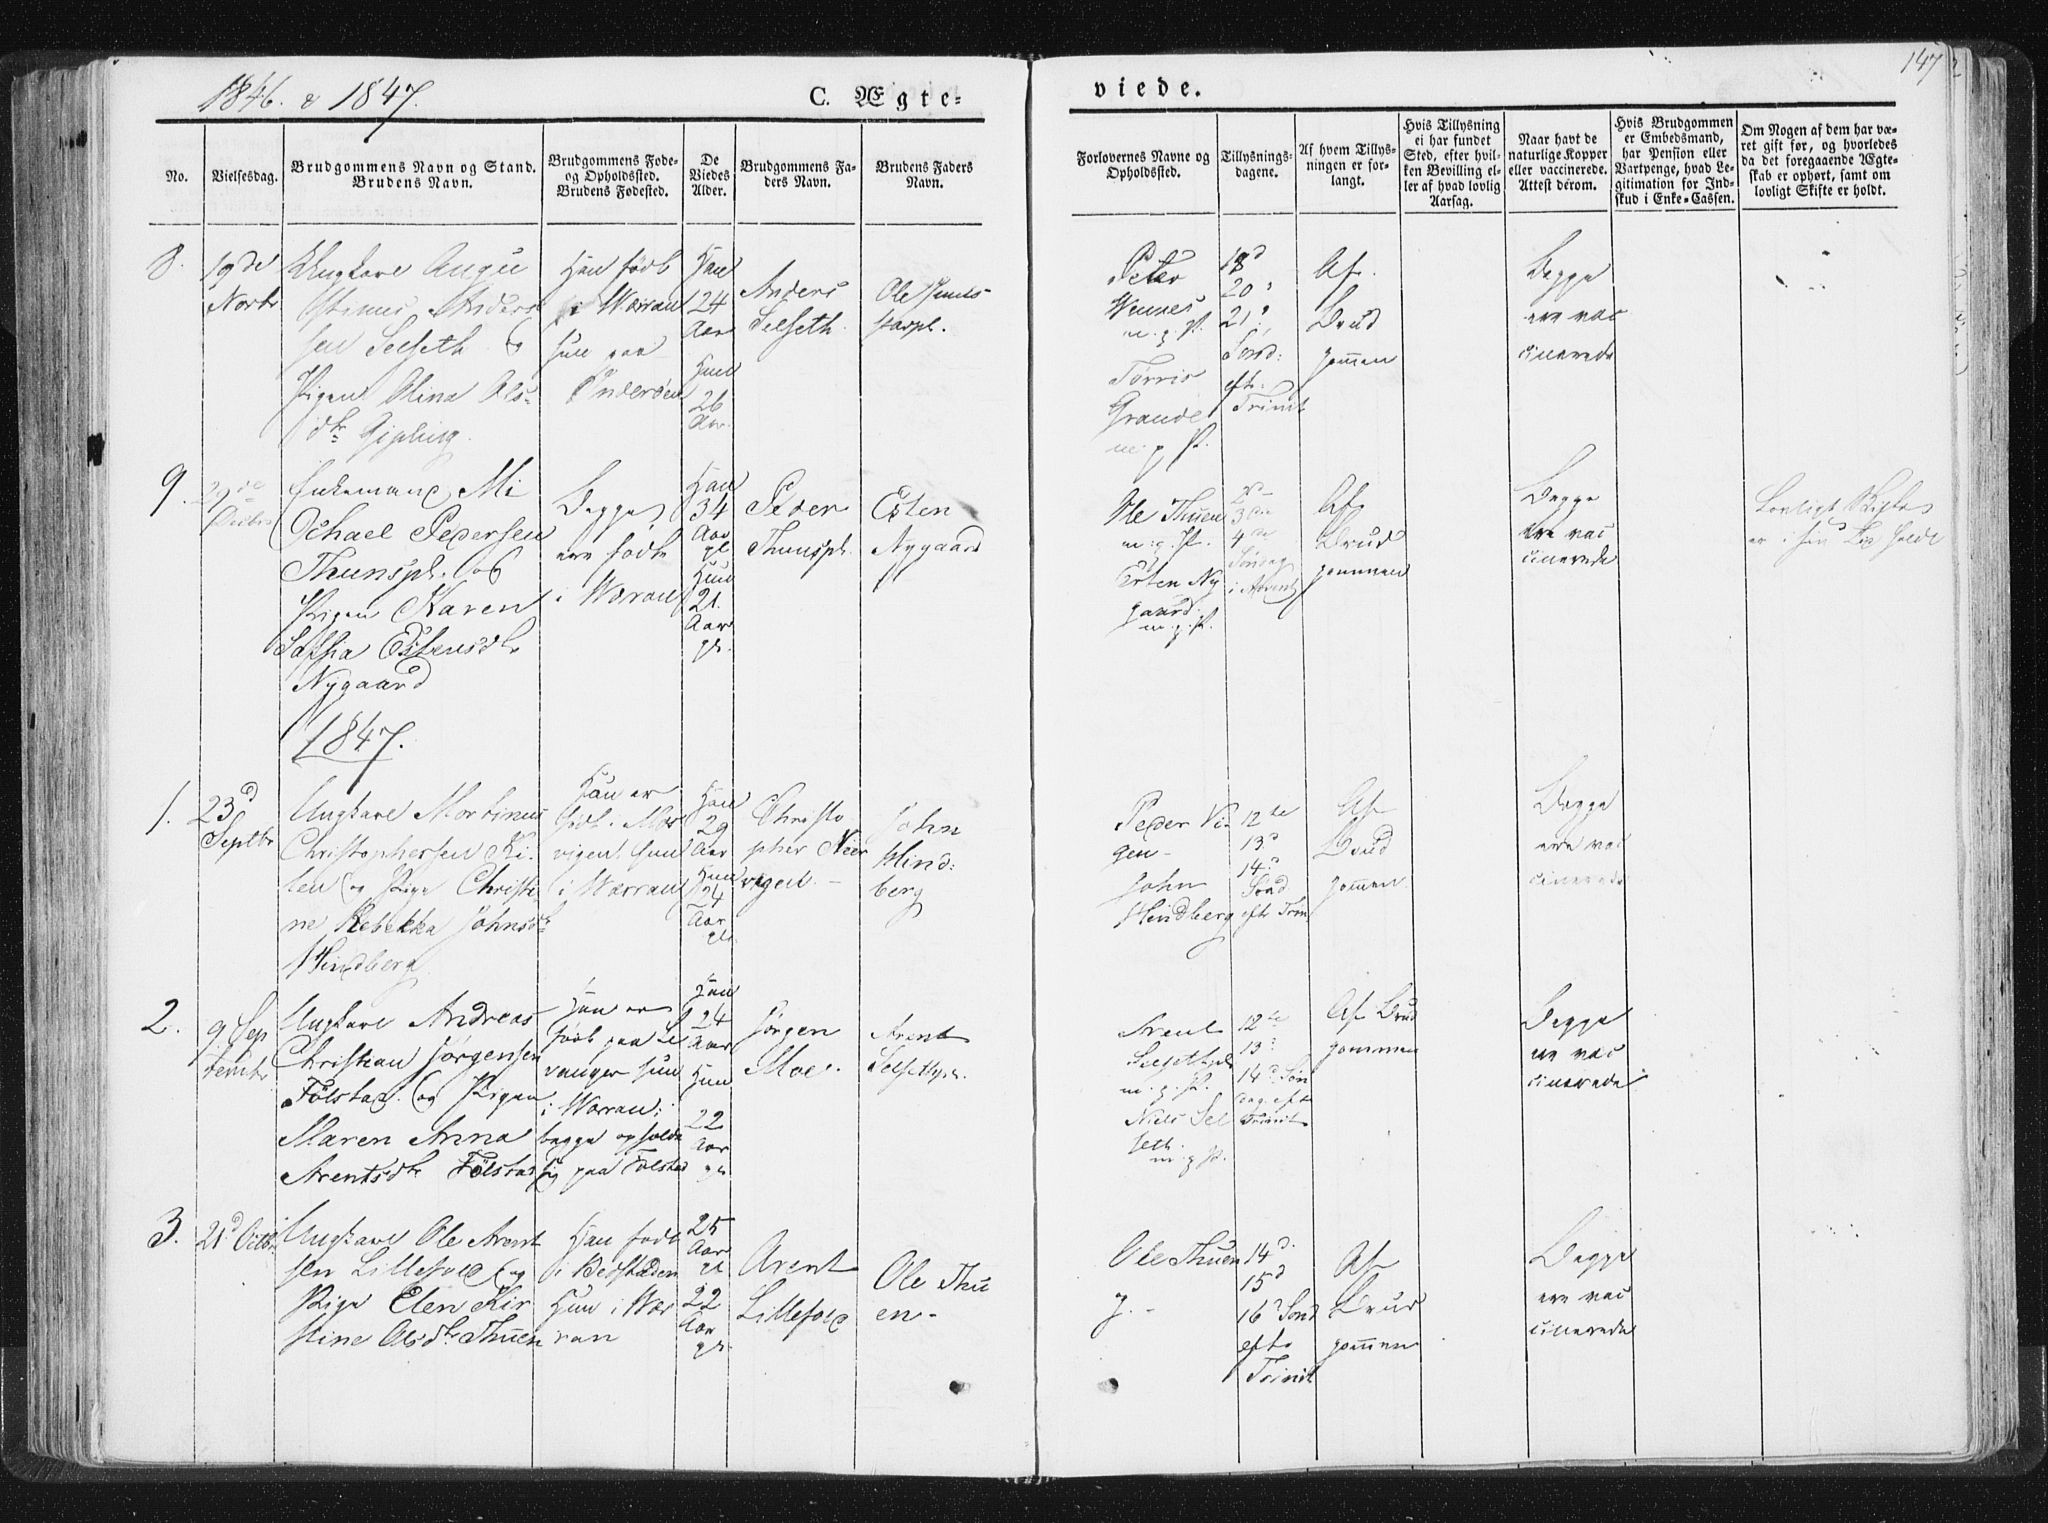 1846. & 1847.
C. Ægte-
viede.
147
No.
Vielsesdag.
Brudgommens Navn og Stand.
Brudens Navn.
Brudgommens Føde-
og Opholdssted.
Brudens Fødested.
De
Viedes
Alder.
Brudgommens Fa-
ders Navn.
Brudens Faders
Navn.
Forlovernes Navne og
Opholdssted.
Tillysnings-
dagene.
Af hvem Tillys-
ningen er for-
langt.
Hvis Tillysning
ei har fundet
Sted, efter hvil-
ken Bevilling el-
ler af hvad lovlig
Aarsag.
Naar havt de
naturlige Kopper
eller vaccinerede.
Attest derom.
Hvis Brudgommen
er Embedsmand,
har Pension eller
Vartpenge, hvad Le-
gitimation for Ind-
skud i Enke-Cassen.
Om Nogen af dem har væ-
ret gift før, og hvorledes
da det foregaaende Ægte-
skab er ophørt, samt om
lovligt Skifte er holdt.
8.
19de
Novbr
Ungkarl Augu
stinus Anders
sen Selseth &
Pigen Olina Ols
dtr
Han født
i Værran
hun paa
Ynderøen
Han
24
Aar
Hun
26
Aar.
Anders
Selseth.
Ole
Peter
Wennes
m. p. P.
Torris
Grande
m. p. P.
18d
20
21
Sønd:
eft:
Trinit
Af
Brud
gommen
Begge
ere vac
cinerede
9.
29de
Decbr
Enkemand Mi
chael Pedersen
Thunspl. og
Pigen Karen
Sophia Estensdtr
Nygaard
Begge
ere fødte
i Værran
Han
34
Aar
gl
Hun
21.
Aar
gl.
Peder
Thunspl.
Esten
Nygaard
Ole Thuen
m. p. P.
Esten Ny
gaard
m. p. P.
2de
3die
4de
Søndag
i Advent
Af
Brud
gommen
Begge
ere vac
cinerede
Lovligt Skifte
er i sin holdt
1847.
1.
23d
Septbr
Ungkarl Mortinus
Christophersen Ki
len og Pige Christi
ne Rebekka Johnsdtr
Hindberg
Han er
født i Mar
vigen hun
i Værran
Han
29
Aar
Hun
24
Aar
gl.
Christo
pher
vigen. -
John
Hind:
berg
Peder Vi
gen -
John
Hindberg
12te
13d
14d
Sønd
eft Trin
Af
Brud
gommen
Begge
ere vac
cinerede
2.
9 Sep
tembr
Ungkarl Andreas
Christian Jørgensen
Følstad. og Pigen
Maren Anna
Arentsdtr Følstad
Han er
født paa Le
vanger hun
i Værran;
begge opholde
sig paa Følstad
Han
24
Aar
Hun
22
Aar
gl.
Jørgen
Moe.
Arent
Selsethpl.
Arent
Selsethpl
m. p. P.
Niels Sel
seth
m. p. P.
12te
13d
14d Søn
dag eft
Trinit
Af Brud
gommen
Begge
ere vac
cinerede
3.
21d Octbr
Ungkarl Ole Arent
sen Lillefold og
Pige Elen Kir
stine Olsdtr Thuen
Han født
i Bedstaden
Hun i Vær
ran
25
Aar
gl
22
Aar
gl.
Arent
Lillefold
Ole Thu
en-
Ole Thuen
14d
15d
16d Sønd
efter
Trinit
Af
Brud
gommen
Begge
ere vac
cinerede